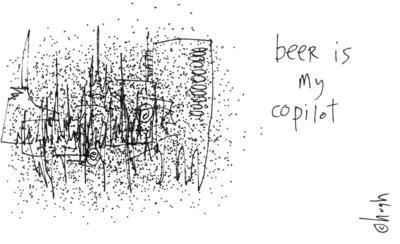 beer is
my
copilot
©hugh